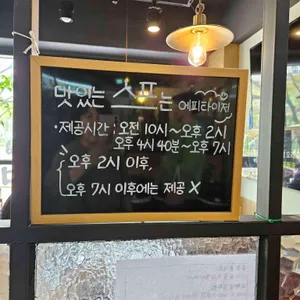 맛있는 스프는 에피타이저
· 제공시간 : 오전 10시~오후 2시
오후 4시 40분~오후 7시
오후 2시 이후,
오후 7시 이후에는 제공 X